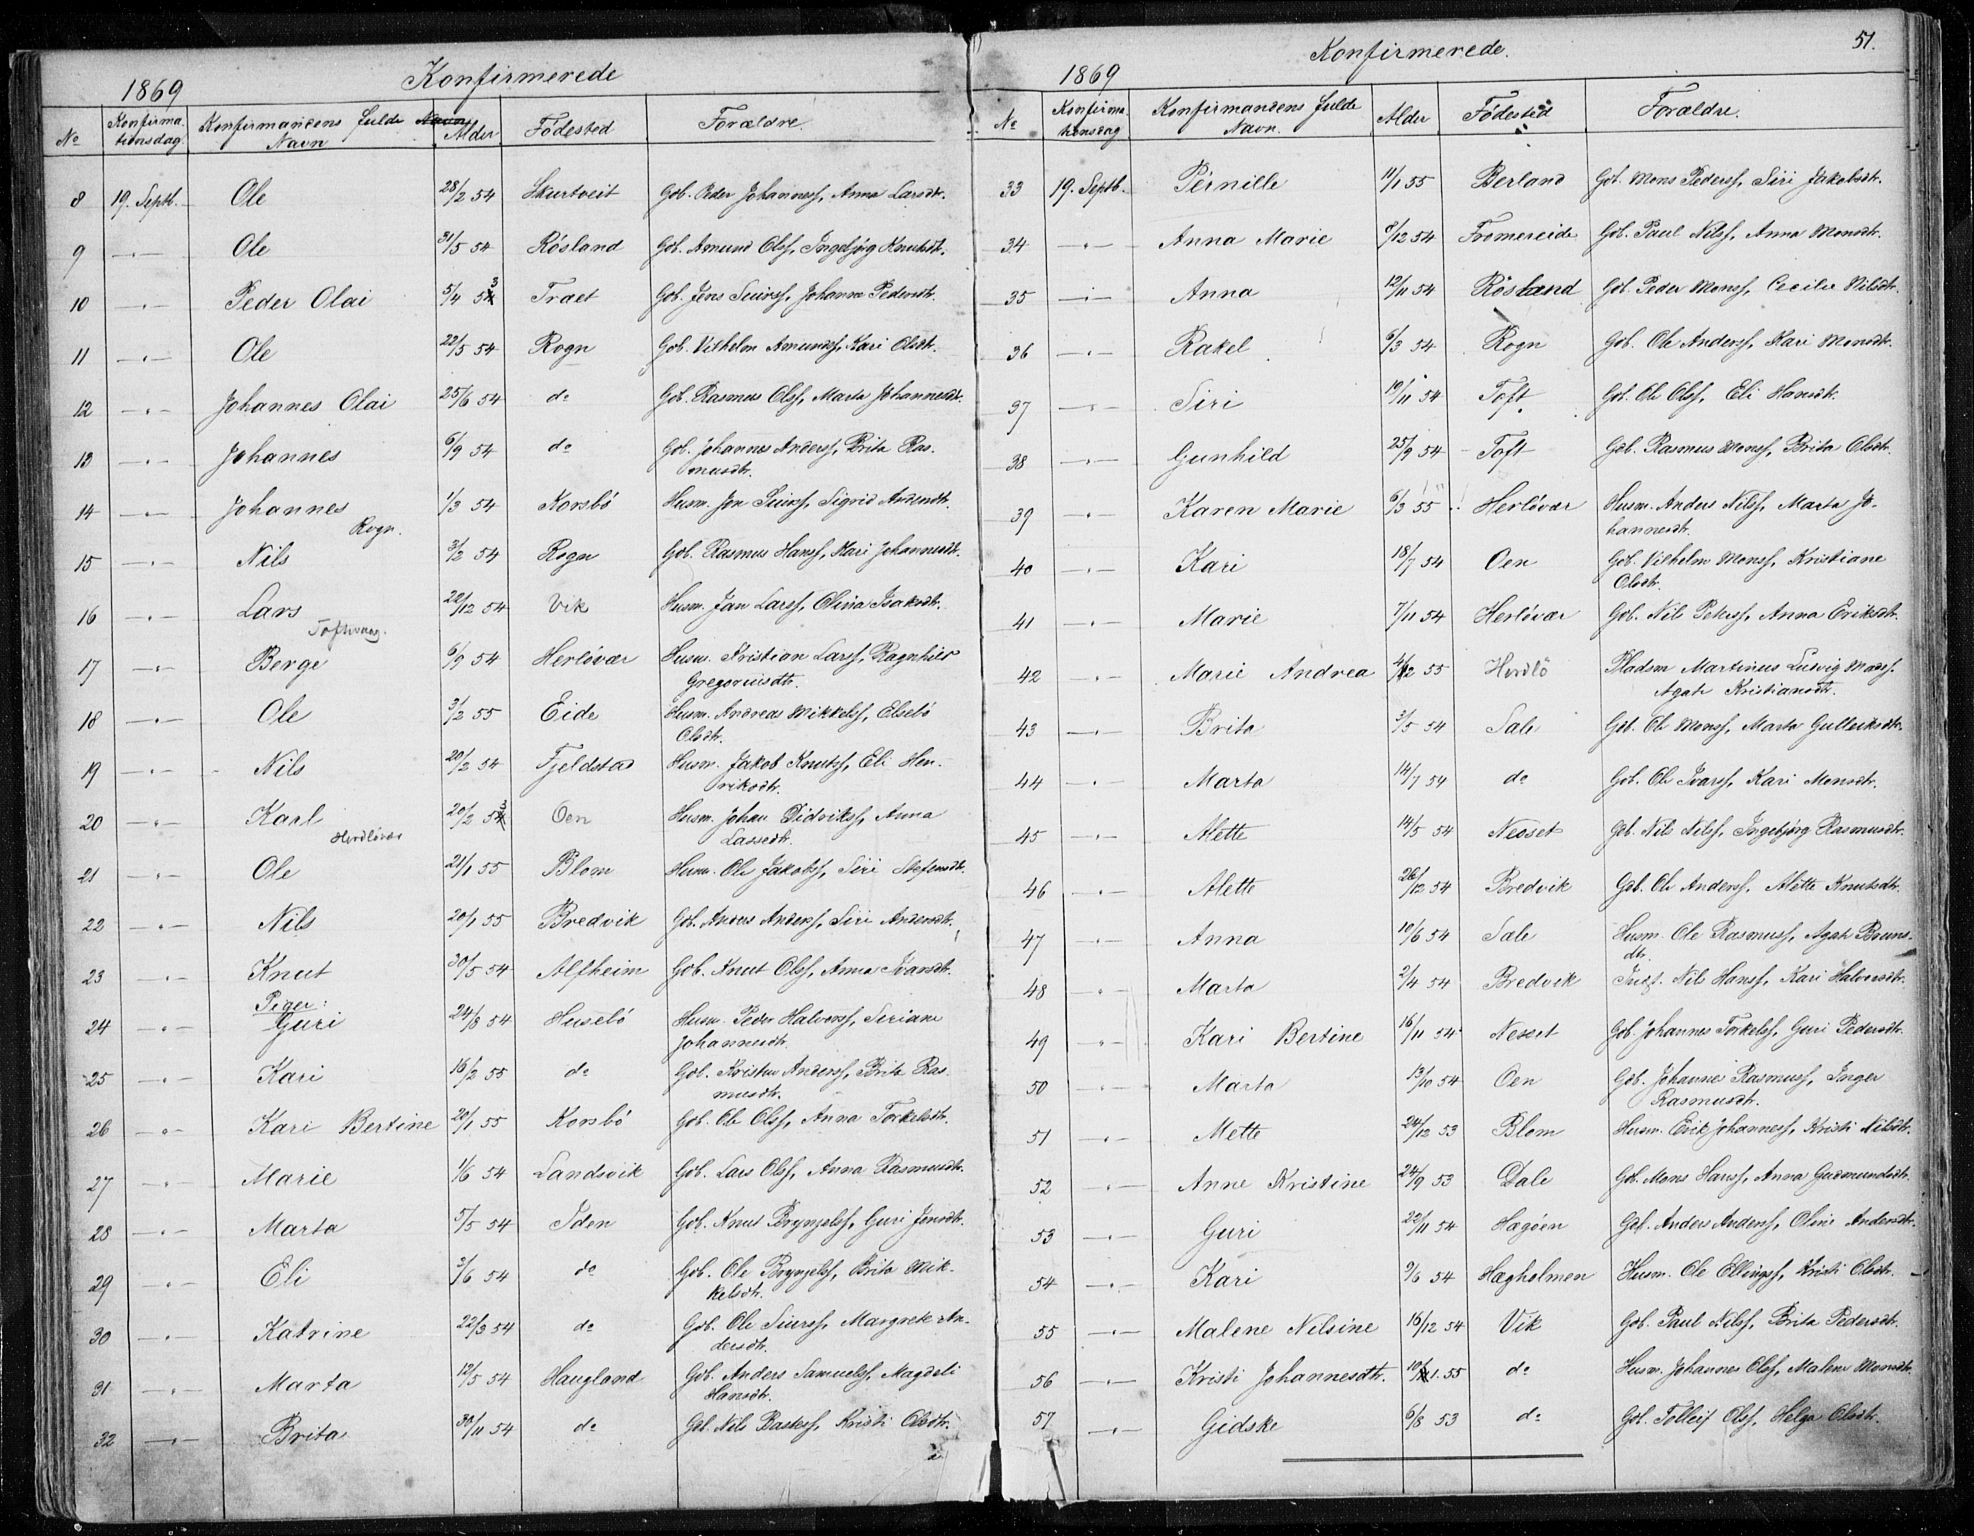 1869 Konfirmerede
No Konfirmationsdag Konfirmandens fulde Navn Alder Födested Forældre
8 19. Septb. Ole 28/2 54 Skurtveit Gbb. Peder Johannesf, Anna Larsdt.
9 —"— Ole 31/5 54 Rösland Gbb. Amund Olsf, Ingebjøg Knutsdt.
10 —"— Peder Olai 5/4 53 Træt Gbb. Jens Siursf, Johanna Pedersdt.
11 —"— Ole 22/5 54 Rogn Gbb. Vilhelm Amundsf, Kari Olsdt.
12 —"— Johannes Olai 25/6 54 do Gbb. Rasmus Olsf, Marta Johannesdt.
13 —"— Johannes 6/9 54 do Gbb. Johannes Andersf, Brita Ras-
musdt.
14 —"— Johannes 1/3 54 Korsbö Husm. Jon Siursf, Sigrid Andersdt.
Rogn.
15 —"— Nils 3/2 54 Rogn Gbb. Rasmus Hansf, Kari Johannesdt.
16 —"— Lars 22/12 54 Vik Husm. Jan Larsf, Olina Isaksdt.
Toftvaag.
17 —"— Berge 6/9 54 Herlövær Husm. Kristian Larsf, Ragnhild
Gregoriusdt.
18 —"— Ole 3/2 55 Eide Husm. Andreas Mikkelsf, Elsebö
Olsdt.
19 —"— Nils 20/2 54 Fjeldstad Husm. Jakob Knutsf, Eli Hen-
riksdt.
20 —"— Karl 20/2 53 Oen Husm. Johan Didriksf, Anna
Lassedt.
Herdlövær
21 —"— Ole 21/1 55 Blom Husm. Ole Jakobsf, Siri Stefensdt.
22 —"— Nils 20/1 55 Bredvik Gbb. Anders Andersf, Siri Andersdt.
23 —"— Knut 30/5 54 Alfheim Gbb. Knut Olsf, Anna Ivarsdt.
Piger:
24 —"— Guri 24/8 54 Husebö Husm. Peder Halvorsf, Siriane
Johannesdt.
25 —"— Kari 16/2 55 do Gbb. Kristen Andersf, Brita Ras-
musdt.
26 —"— Kari Bertine 20/1 55 Korsbö Gbb. Ole Olsf, Anna Torkelsdt.
27 —"— Marie 1/6 54 Landsvik Gbb. Lars Olsf, Anna Rasmusdt.
28 —"— Marta 5/5 54 Iden Gbb. Knut Brynjelsf, Guri Jensdt.
29 —"— Eli 3/6 54 do Gbb. Ole Brynjelsf, Brita Mik-
kelsdt.
30 —"— Katrine 22/3 54 do Gbb. Ole Siursf, Margrete An-
dersdt.
31 —"— Marta 12/5 54 Haugland Gbb. Anders Samuelsf, Magdeli
Hansdt.
32 —"— Brita 30/11 54 do Gbb. Nils Bastesf, Kristi Olsdt.
1869 Konfirmerede. 51.
No Konfirmationsdag Konfirmandens fulde Navn. Alder Födested Forældre.
33 19. Septb. Pernille 11/1 55 Berland Gbb. Mons Pedersf, Siri Jakobsdt.
34 —"— Anna Marie 8/12 54 Fromereide Gbb. Paul Nilsf, Anna Monsdt.
35 —"— Anna 12/11 54 Rösland Gbb. Peder Monsf, Cecilie Nilsdt.
36 —"— Rakel 6/3 54 Rogn Gbb. Ole Andersf, Kari Monsdt.
37 —"— Siri 19/11 54 Toft Gbb. Ole Olsf, Eli Hansdt.
38 —"— Gunhild 25/9 54 Toft Gbb. Rasmus Monsf, Brita Olsdt.
39 —"— Karen Marie 6/3 55 Herlövær Husm. Anders Nilsf, Marta Jo-
hannesdt.
40 —"— Kari 18/7 54 Oen Gbb. Vilhelm Monsf, Kristiane
Olsdt.
41 —"— Marie 7/11 54 Herlövær Gbb. Nils Petersf, Anna Eriksdt.
42 —"— Marie Andrea 4/2 55 Herdlö Pladsm Martinus Ludvig Madsf.
Agate Kristiansdt.
43 —"— Brita 3/5 54 Sale Gbb. Ole Monsf, Marta Gulleiksdt.
44 —"— Marta 14/7 54 do Gbb. Ole Ivarsf, Kari Monsdt.
45 —"— Mette 14/5 54 Neset Gbb. Nils Nilsf, Ingebjørg Rasmusdt.
46 —"— Alette 26/12 54 Bredvik Gbb. Ole Andersf, Alette Knutsdt.
47 —"— Anna 10/6 54 Sale Husm. Ole Rasmusf, Agate Bruns-
dt.
48 —"— Marta 2/4 54 Bredvik Nils Hansf, Kari Halvorsdt.
49 —"— Kari Bertine 16/11 54 Neset Gbb. Johannes Torkelsf, Guri Pedersdt.
50 —"— Marta 13/10 54 Oen Gbb. Johannes Rasmusf, Inger
Rasmusdt.
51 —"— Mette 24/12 53 Blom Husm. Erik Johannesf, Kristi Nilsdt.
52 —"— Anne Kristine 24/9 53 Dale Gbb. Mons Hansf, Anna Gudmundsdt.
53 —"— Guri 22/11 54 Hægöen Gbb. Anders Andersf, Oline Andersdt.
54 —"— Kari 9/6 54 Hægholmen Husm. Ole Ellingsf, Kristi Olsdt.
55 —"— Malene Nilsine 16/12 54 Vik Gbb. Paul Nilsf, Brita Pedersdt.
56 —"— Kristi Johannesdt. 10/1.55 do Husm. Johannes Olsf, Malene Monsdt.
57 —"— Gidske 6/8 53 do Gbb. Tolleif Olsf, Helga Olsdt.